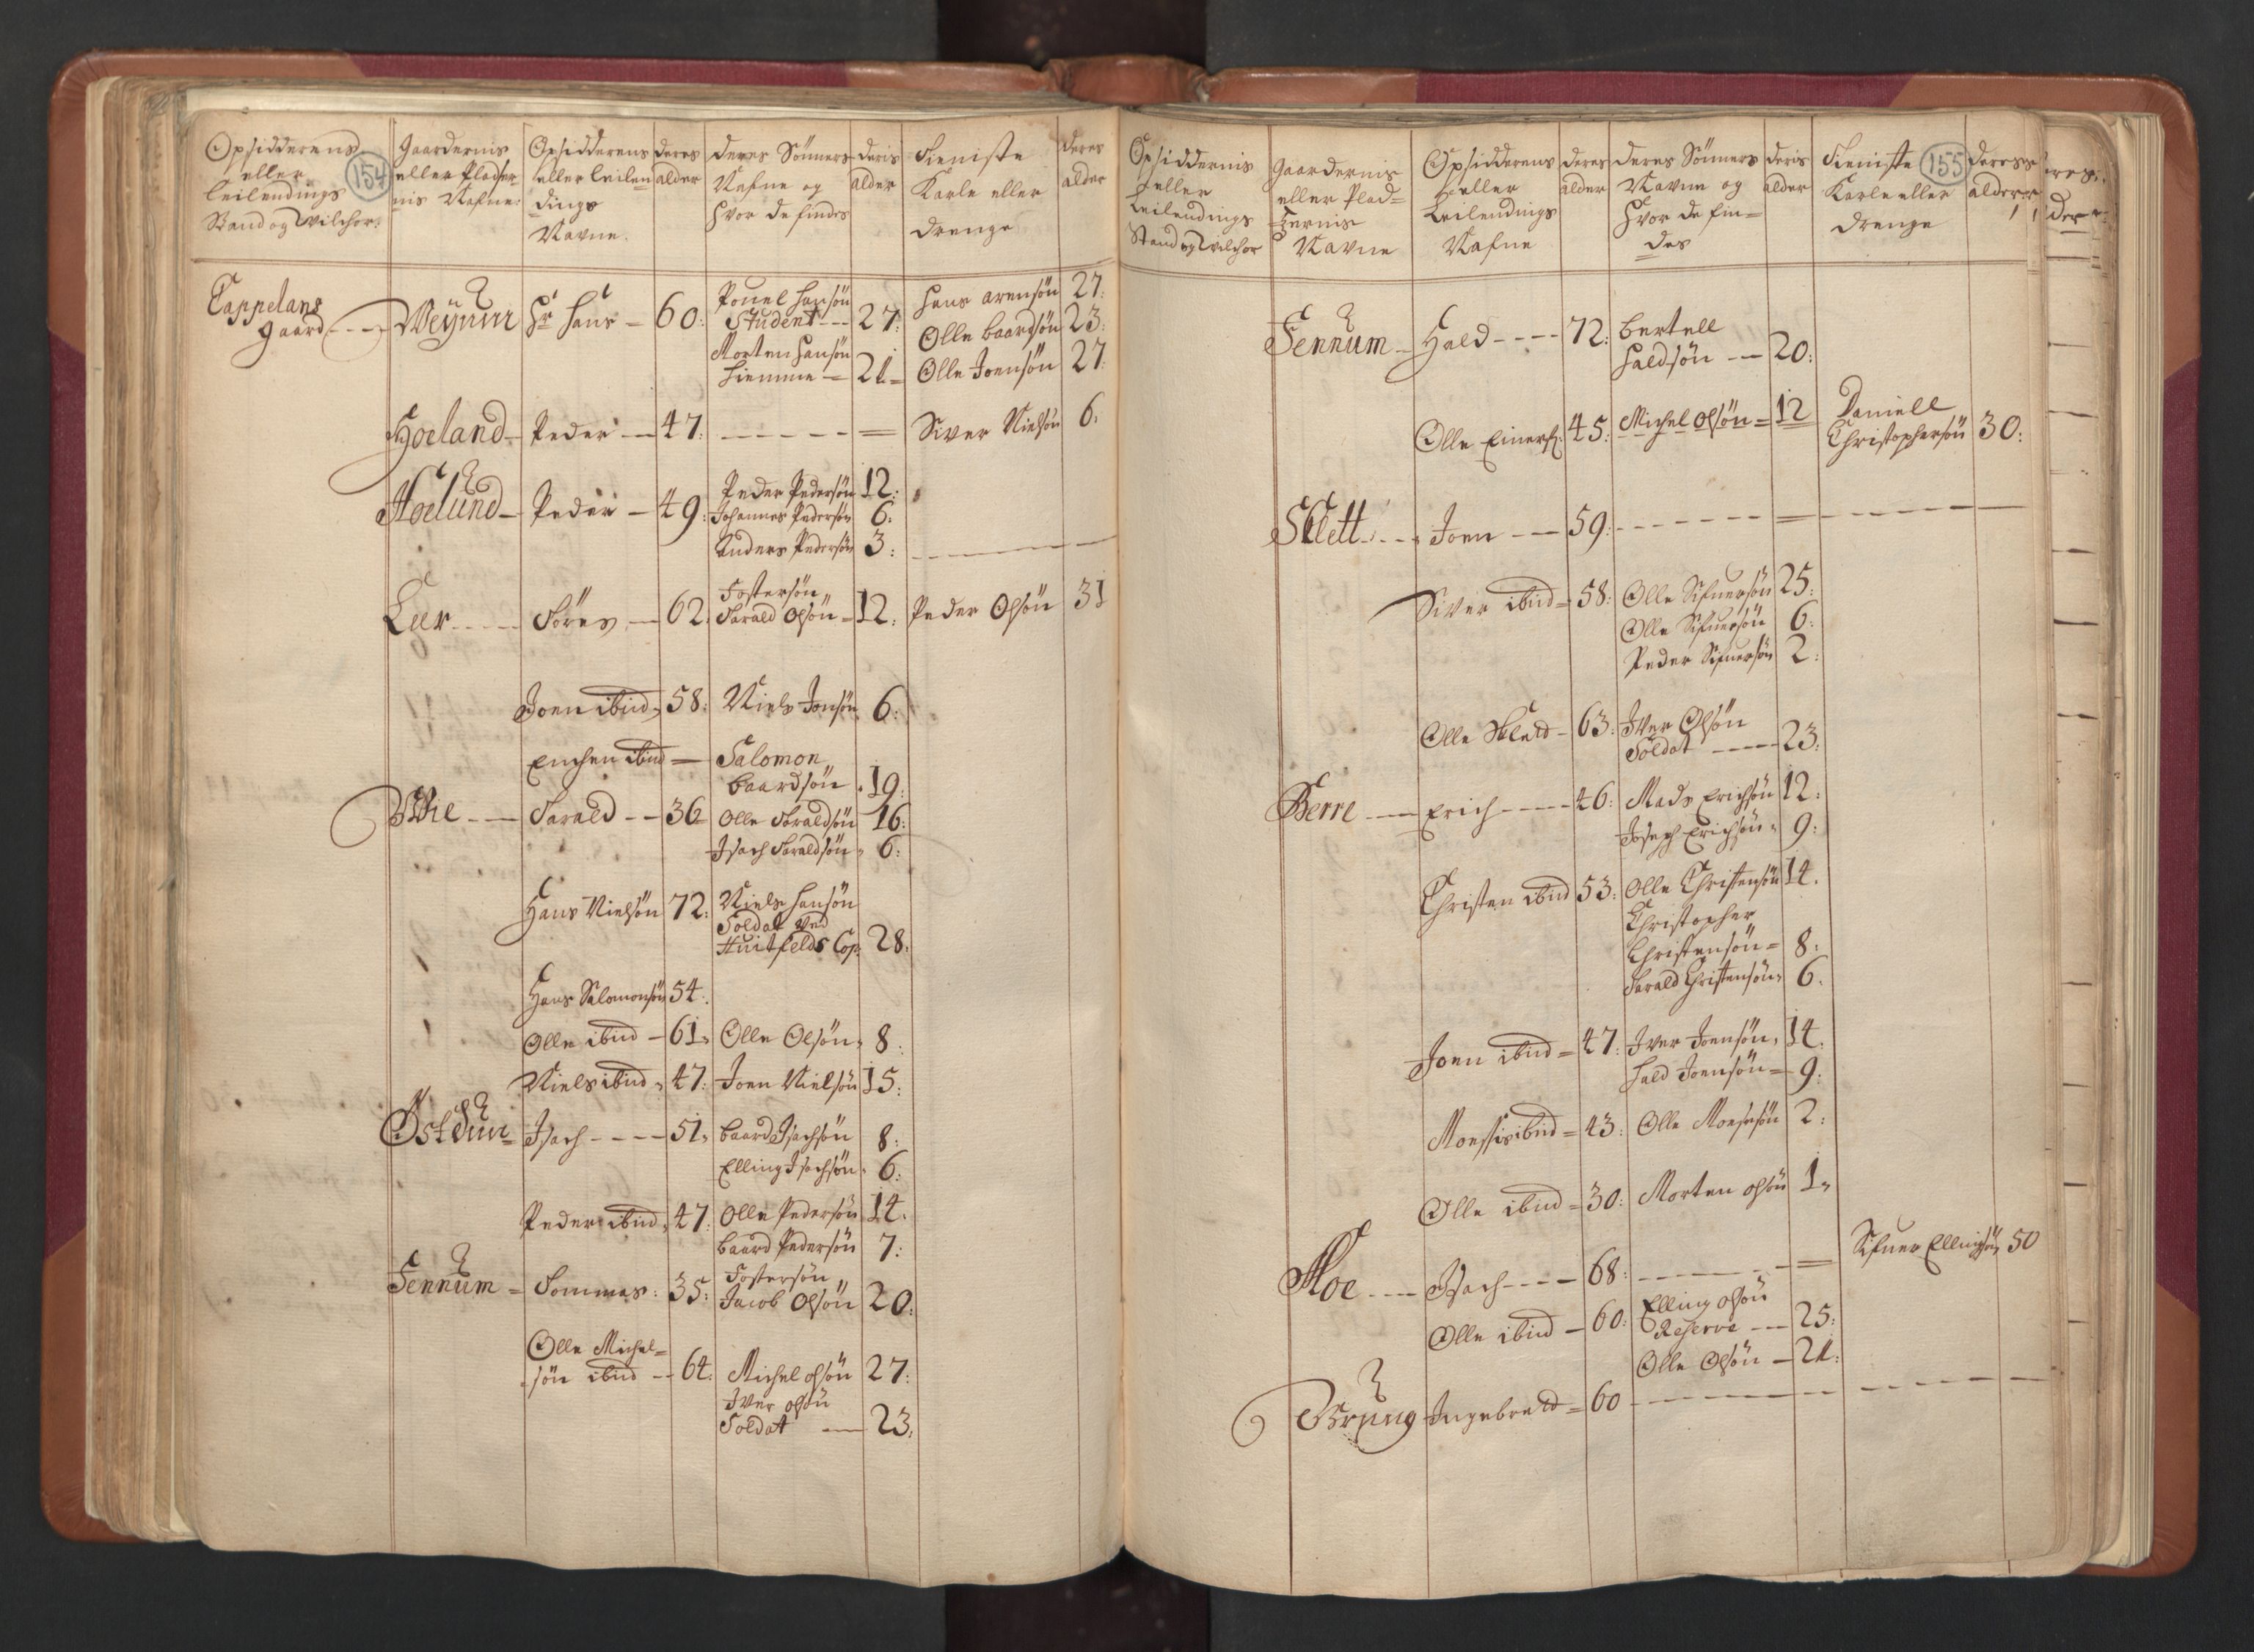 154
Opsidderens eller Leilendings Stand og Wilchor:
Gaardernis eller Pladsernis Nafne:
Opsidderens eller Leilendings Navne.
deres alder
deres Sönners Nafne og Hvor de findes
deris alder
Tieniste Karle eller drenge
deres alder
Cappelans gaard --- Weÿum Hr Hans - 60: Pouel Hansön Student --- 27: Hans arensön 27:
Olle baardsön 23:
Morten Hansön hiemme - 21 = Olle Joensön 27
Hoeland - Peder -- 47: - - - - - = Siver Nielsön 6.
Hoelund - Peder - 49: Peder Pedersön 12:
Johannes Pedersön 6:
Anders Pedersön 3:
Leer --- Töres -- 62. Fostersön Tarald Olsön = 12: Peder Olsön 31
Joen ibid = 58: Niels Jonsön 6:
Enchen ibid — Salomon baardsön . 19:
Wiie --- Tarald -- 36 Olle Taraldsön 16:
Isach Taraldsön = 6:
Hans Nielsön 72: Niels Hansön Soldat ved Huitfelds Cop: 28:
Hans Salomonsön 54:
Olle ibid - 61 = Olle Olsön = 8:
Niels ibid = 47: Joen Nielsön 15:
Östdun = Isach ---- 51 = baard Isachsön 8:
Elling Isachsön = 6:
Peder ibid = 47: Olle Pedersön 14.
baard Pedersön 7:
Fennum = Tommes : 35: Fostersön Jacob Olsön 20:
Olle Michel=
sön ibid -- 64: Michel olsön 27:
Iver olsön
Soldat --- 23:
155
Opsiddernis eller Leilendings Stand og vilchor
Gaardernis eller Pladzernis Navne
Opsidderens eller Leilendings Nafne
deres alder
deres Sönners Navne og Hvor de findes
deris alder
Tieniste Karle eller drenge
deres alder
Fennum - Hald ---- 72: bertell
Haldsön --- 20:
Olle Einers: 45: Michel olsön = 12 Daniell Christophersön 30:
Sklett --- Joen --- 59: - - - - - =
Siver ibid = 58: Olle Sifuersön 25:
Olle Sifuersön 6:
Peder Sifuersön 2:
Olle Sklett - 63: Iver Olsön
Soldat ---- 23:
Berre --- Erich ---- 46: Mads Erichsön 12:
Joseph Erichsön = 9:
Christen ibid 53: Olle Christensön 14.
Christopher
Christensön = 8:
Tarald Christensön = 6.
Joen ibid = 47: Iver Joensön = 14.
Hald Joensön = 9:
Monssis ibid = 43: Olle Monssön 2:
Olle ibid = 30: Morten olsön 1=
Moe --- Isach --- 68: - - - - - = Sifuer Ellingsön 50
Olle ibid - 60: Elling olsön
Reserve --- 25:
Olle Olsön - 21:
Bruug Ingebret = 60 - - - - -